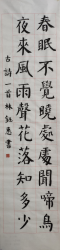 春眠不覺曉處處聞啼鳥
夜來風雨聲花落知多少
古詩一首林鈺惠書